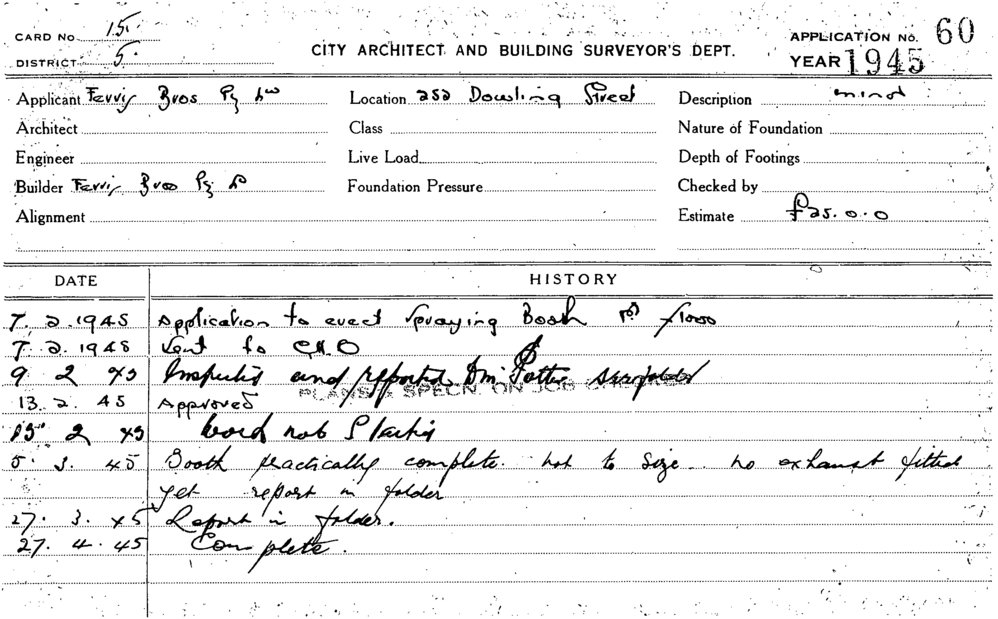 CARD No. 15.
DISTRICT 5.
CITY ARCHITECT AND BUILDING SURVEYOR'S DEPT.
APPLICATION No. 60
YEAR 1945
Applicant Ferris Bros Pty Location 252 Dowling Street Description minor
Architect Class Nature of Foundation
Engineer Live Load Depth of Footings
Builder Ferris Bros Pty Foundation Pressure Checked by
Alignment Estimate £25.0.0
DATE HISTORY
7. 2. 1945 Application to erect Spraying Booth
7. 2. 1945 Sent to
9 2 45 Inspected and reported
PLANS & SPECN. ON JOB
13. 2. 45 Approved
15 2 45 Work not Started
5. 3. 45 Booth practically complete. not to size. no exhaust fitted
yet report in folder
27. 3. 45 Report in folder.
27. 4. 45 Complete.